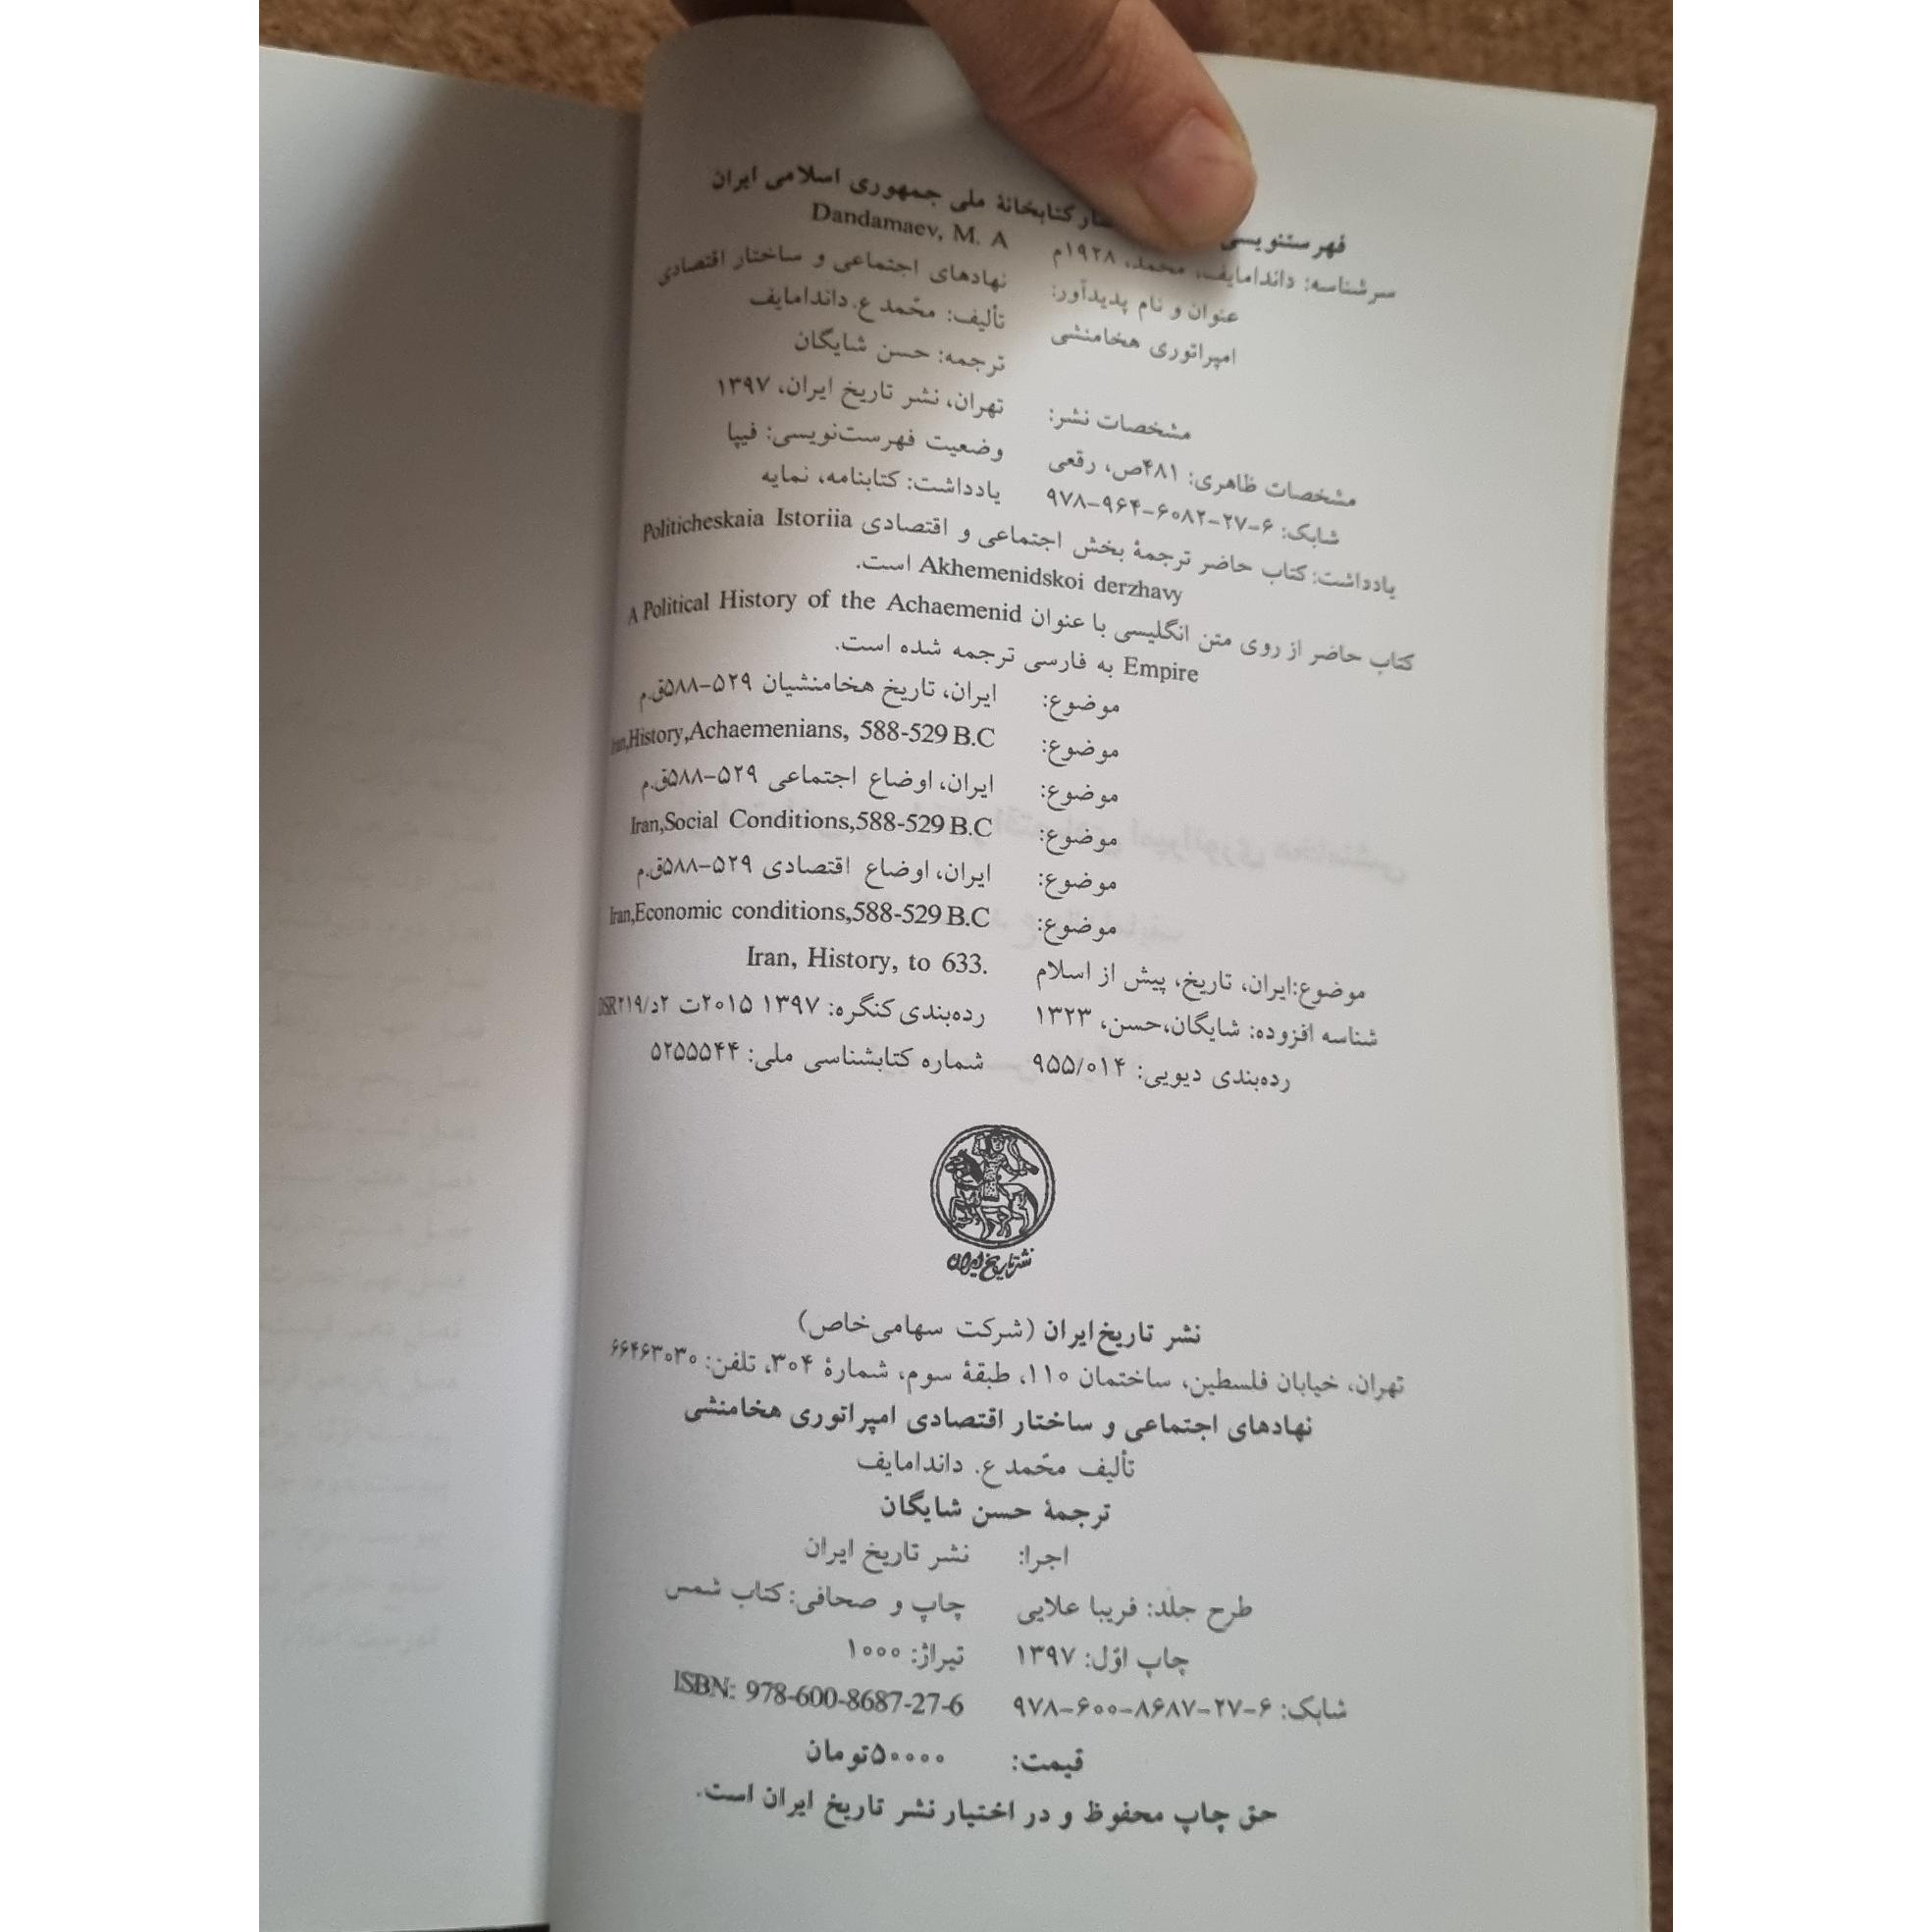 فهرستنویسی کتابخانهٔ ملی جمهوری اسلامی ایران
سرشناسه: داندامایف، محمد، ۱۹۲۸م Dandamaev, M. A
عنوان و نام پدیدآور: نهادهای اجتماعی و ساختار اقتصادی
امپراتوری هخامنشی تألیف: محّمد ع. داندامایف
ترجمه: حسن شایگان
مشخصات نشر: تهران، نشر تاریخ ایران، ۱۳۹۷
مشخصات ظاهری: ۴۸۱ص، رقعی وضعیت فهرست‌نویسی: فیپا
شابک: ۶-۲۷-۶۰۸۲-۹۶۴-۹۷۸ یادداشت: کتابنامه، نمایه
یادداشت: کتاب حاضر ترجمهٔ بخش اجتماعی و اقتصادی Politicheskaia Istoriia
Akhemenidskoi derzhavy است.
کتاب حاضر از روی متن انگلیسی با عنوان A Political History of the Achaemenid
Empire به فارسی ترجمه شده است.
موضوع: ایران، تاریخ هخامنشیان ۵۲۹-۵۸۸ق.م
موضوع: Iran,History,Achaemenians, 588-529 B.C
موضوع: ایران، اوضاع اجتماعی ۵۲۹-۵۸۸ق.م
موضوع: Iran,Social Conditions,588-529 B.C
موضوع: ایران، اوضاع اقتصادی ۵۲۹-۵۸۸ق.م
موضوع: Iran,Economic conditions,588-529 B.C
موضوع:ایران، تاریخ، پیش از اسلام Iran, History, to 633.
شناسه افزوده: شایگان،حسن، ۱۳۲۳ رده‌بندی کنگره: ۱۳۹۷ ۲۰۱۵ت ۲د/DSR۲۱۹
رده‌بندی دیویی: ۹۵۵/۰۱۴ شماره کتابشناسی ملی: ۵۲۵۵۵۴۴
نشر تاریخ ایران
نشر تاریخ ایران (شرکت سهامی‌خاص)
تهران، خیابان فلسطین، ساختمان ۱۱۰، طبقهٔ سوم، شمارهٔ ۳۰۴، تلفن: ۶۶۴۶۳۰۳۰
نهادهای اجتماعی و ساختار اقتصادی امپراتوری هخامنشی
تألیف محّمد ع. داندامایف
ترجمهٔ حسن شایگان
اجرا: نشر تاریخ ایران
طرح جلد: فریبا علایی چاپ و صحافی: کتاب شمس
چاپ اوّل: ۱۳۹۷ تیراژ: ۱۰۰۰
شابک: ۶-۲۷-۸۶۸۷-۶۰۰-۹۷۸ ISBN: 978-600-8687-27-6
قیمت: ۵۰۰۰۰تومان
حق چاپ محفوظ و در اختیار نشر تاریخ ایران است.